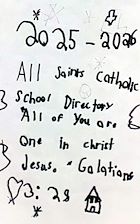 2025-2026
All Saints Catholic
School Directory
"All of you are
One in christ
Jesus." Galations
3:28